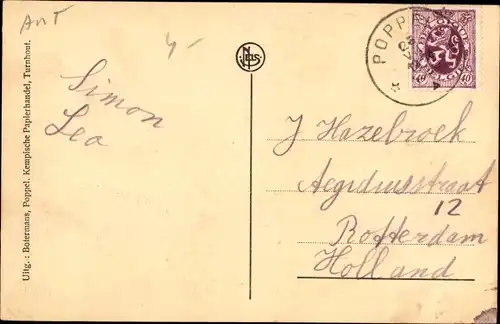 Ant
4-
Simon
Lea
Uitg. : Botermans, Poppel. Kempische Papierhandel, Turnhout.
POPPE
40 40
J Hazebroek
Aegidiusstraat
12
Rotterdam
Holland